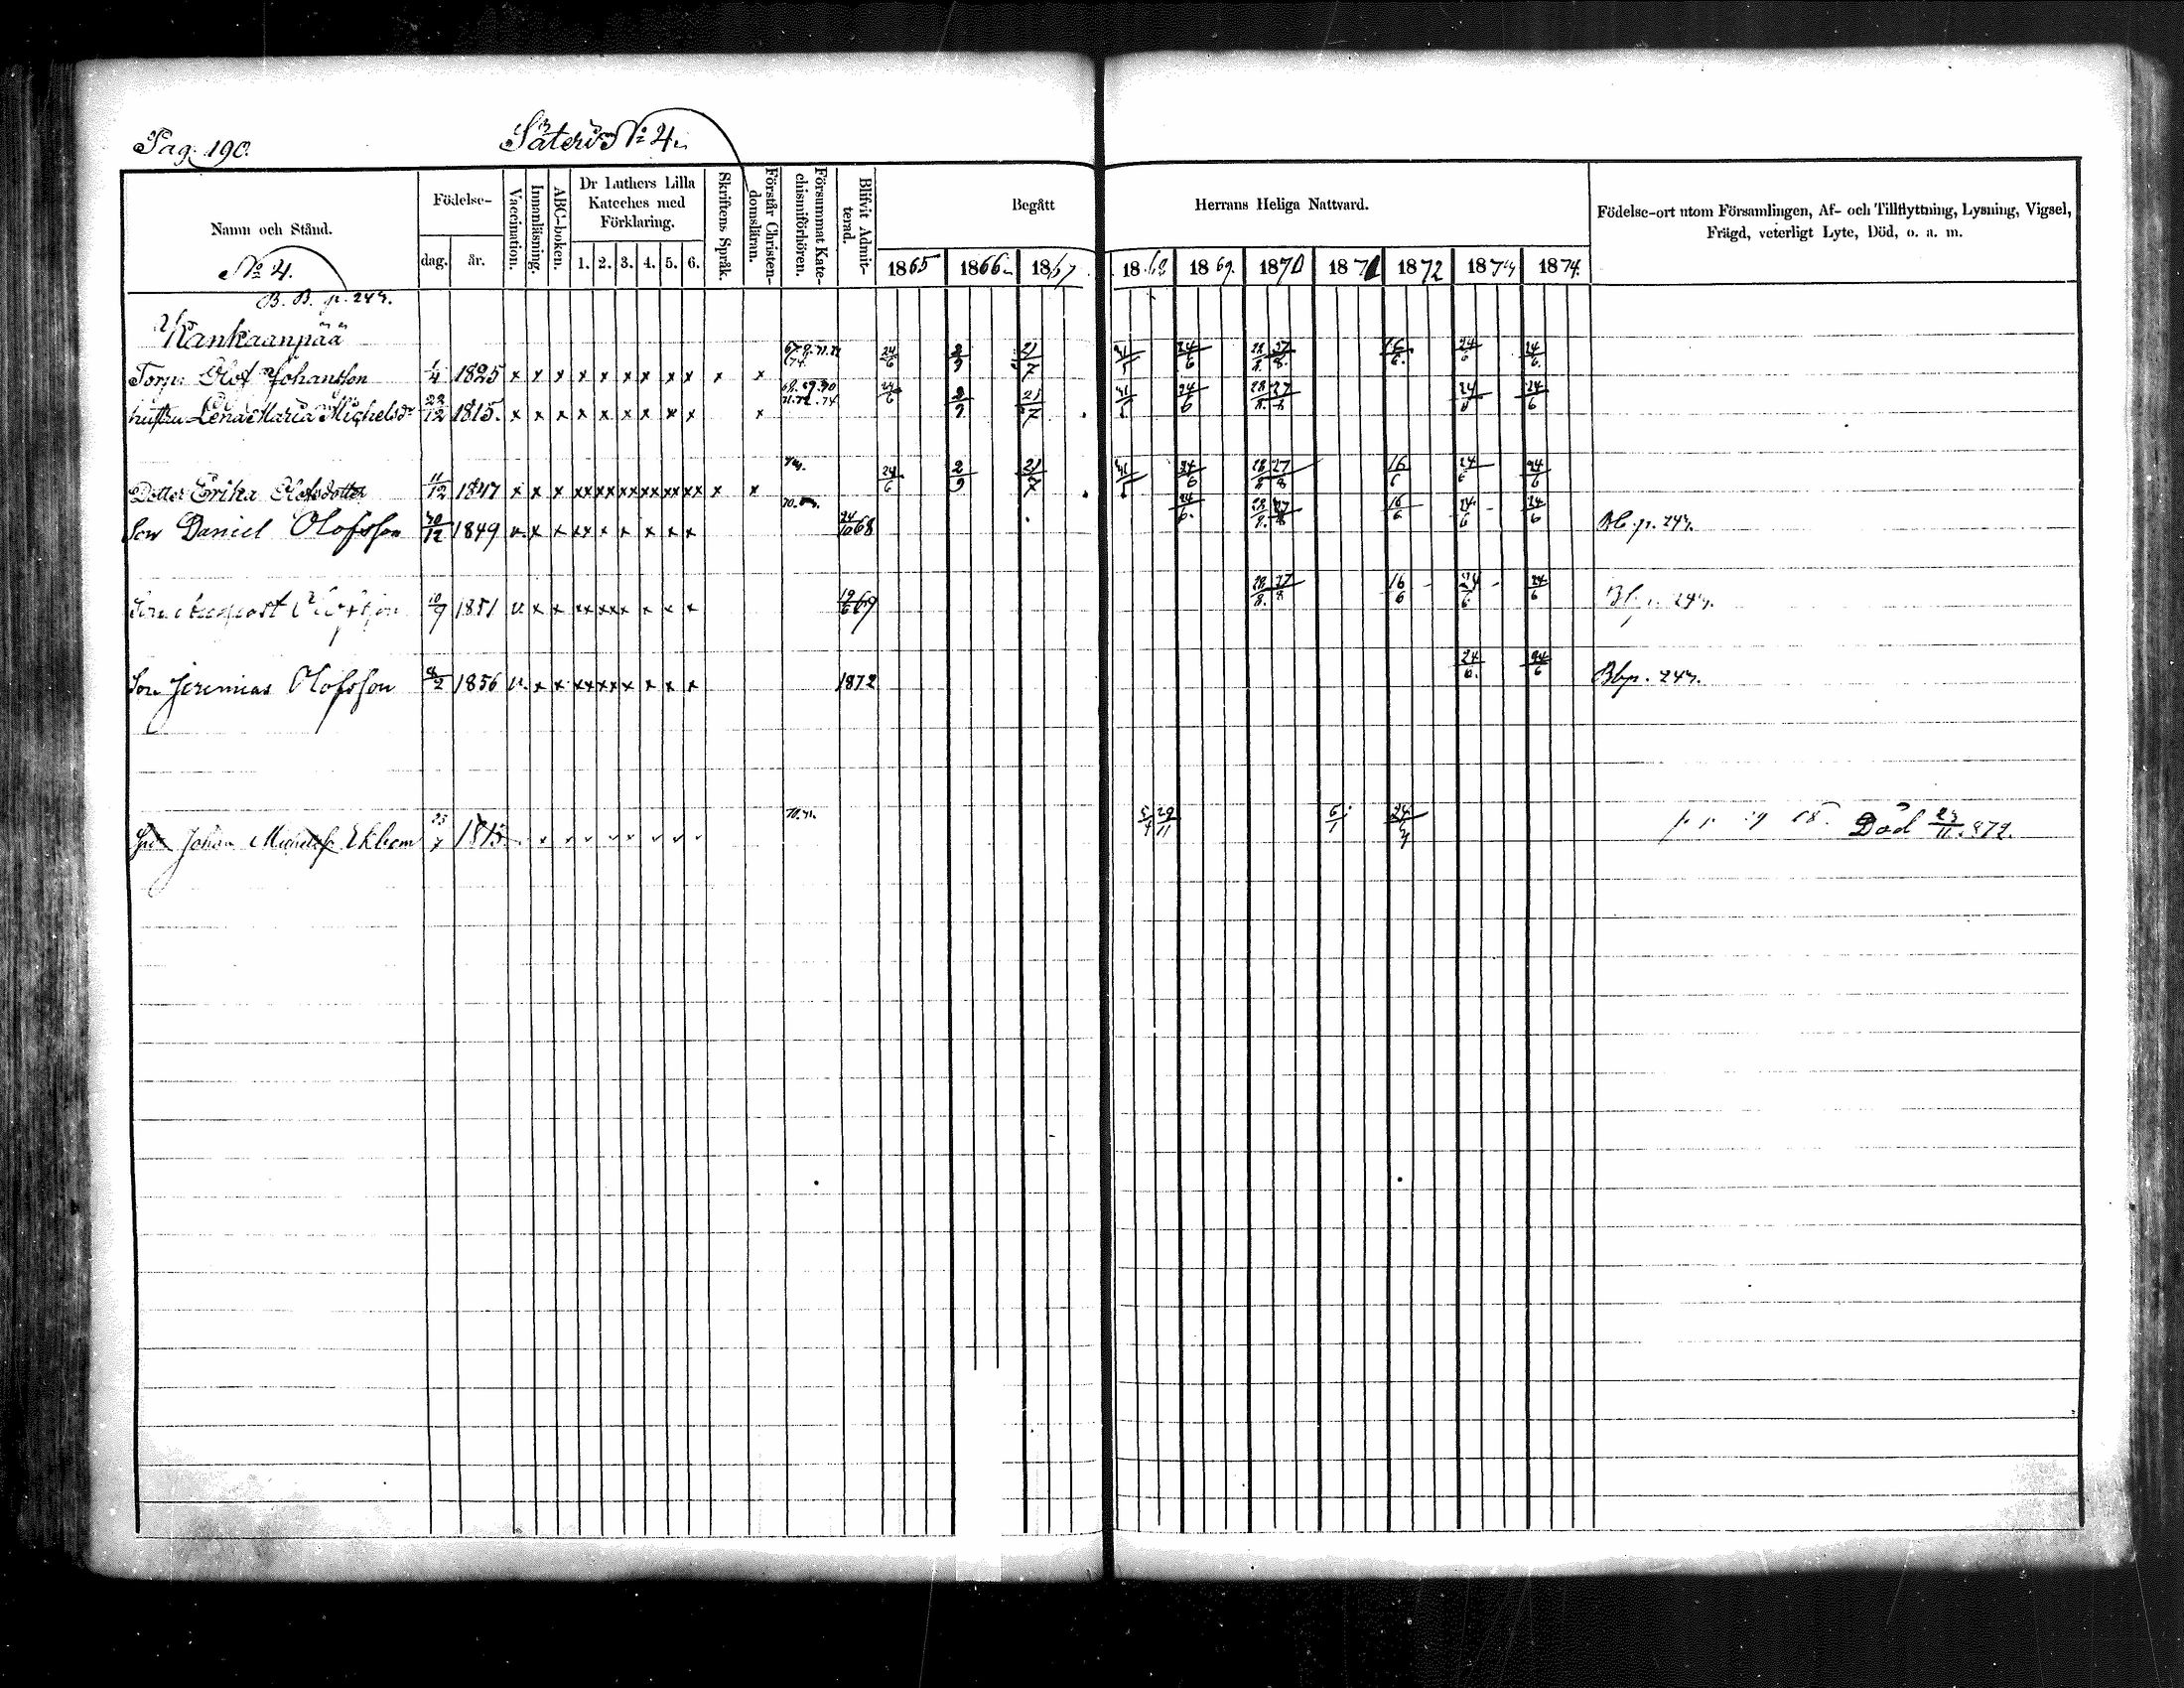 Pag. 190.
Säteri No 4.
Namn och Stånd.
Födelse-
dag. år.
Vaccination.
Innanläsning.
ABC-boken.
Dr Luthers Lilla Kateches med Förklaring.
1. 2. 3. 4. 5. 6.
Skriftens Språk.
Förstår Christendomsläran.
Försummat Katechismiförhören.
Blifvit Admitterad.
Begått Herrans Heliga Nattvard.
1865 1866 1867 1868 1869. 1870 1871 1872 1873 1874.
Födelse-ort utom Församlingen, Af- och Tillflyttning, Lysning, Vigsel,
Frägd, veterligt Lyte, Död, o. a. m.
No 4.
B. B. p. 243.
Kankaanpää
Torp. Olof Johansson 1/4 1825 x x x x x x x x x x x 24/6 2/9 21/7 31/5 24/6 28/8 27/8 16/6 24/6 24/6
hustru Lena Maria Michelsdr 23/12 1815. x x x x x x x x x x 68.69.70 71.72.74 24/6 2/9 21/7 31/5 24/6 28/8 27/8 24/6 24/6
Dotter Erika Olofsdotter 11/12 1847 x x x xx xx xx xx xx xx x x 24/6 2/9 21/7 31/5 24/6 28/8 27/8 16/6 24/6 24/6
Son Daniel Olofsson 30/12 1849 v. x x xx x x x x x 24/10 68 24/6 28/8 27/8 16/6 24/6 24/6 Bb. p. 243.
Son Olofsson 10/9 1851 v. x x xx xx x x x x 19/6 69 28/8 27/8 16/6 24/6 24/6 Bb. p. 243.
Son Jeremias Olofsson 1856 v. x x xx xx x x x x 1872 24/6 24/6 Bbp. 243.
Johan Michelss. Ekbom 1815 29/11 6/1 Död 23/11 872.